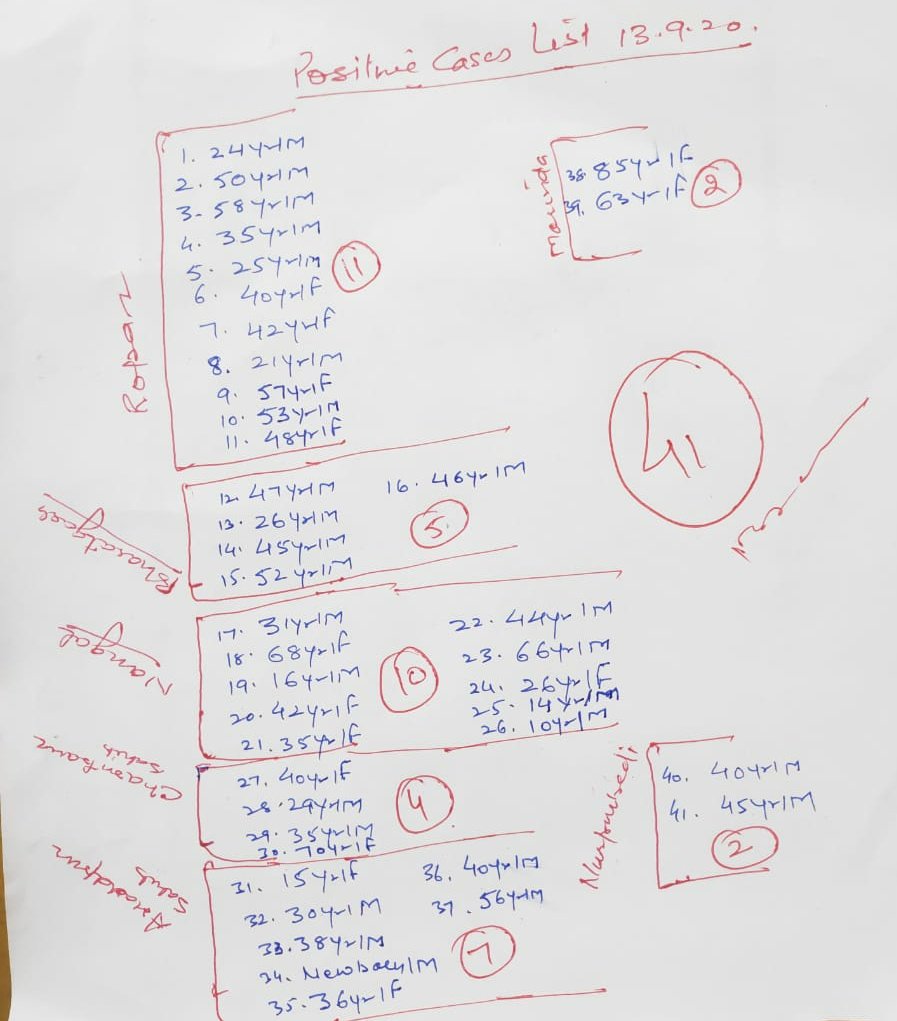 Positive Cases List 13.9.20.
Ropar
1. 24yr/M
2. 50yr/M
3. 58yr/M
4. 35yr/M
5. 25yr/M
6. 40yr/F
7. 42yr/F
8. 21yr/M
9. 57yr/F
10. 53yr/M
11. 48yr/F
11
Morinda
38. 85yr/F
39. 63yr/F
2
41
Bharatgarh
12. 47yr/M
13. 26yr/M
14. 45yr/M
15. 52yr/M
16. 46yr/M
5
Nangal
17. 31yr/M
18. 68yr/F
19. 16yr/M
20. 42yr/F
21. 35yr/F
10
22. 44yr/M
23. 66yr/M
24. 26yr/F
25. 14yr/M
26. 10yr/M
Chamkaur
Sahib
27. 40yr/F
28. 29yr/M
29. 35yr/M
30. 70yr/F
4
Anandpur
Sahib
31. 15yr/F
32. 30yr/M
33. 38yr/M
34. New born/M
35. 36yr/F
36. 40yr/M
37. 56yr/M
7
Nurpurbedi
40. 40yr/M
41. 45yr/M
2